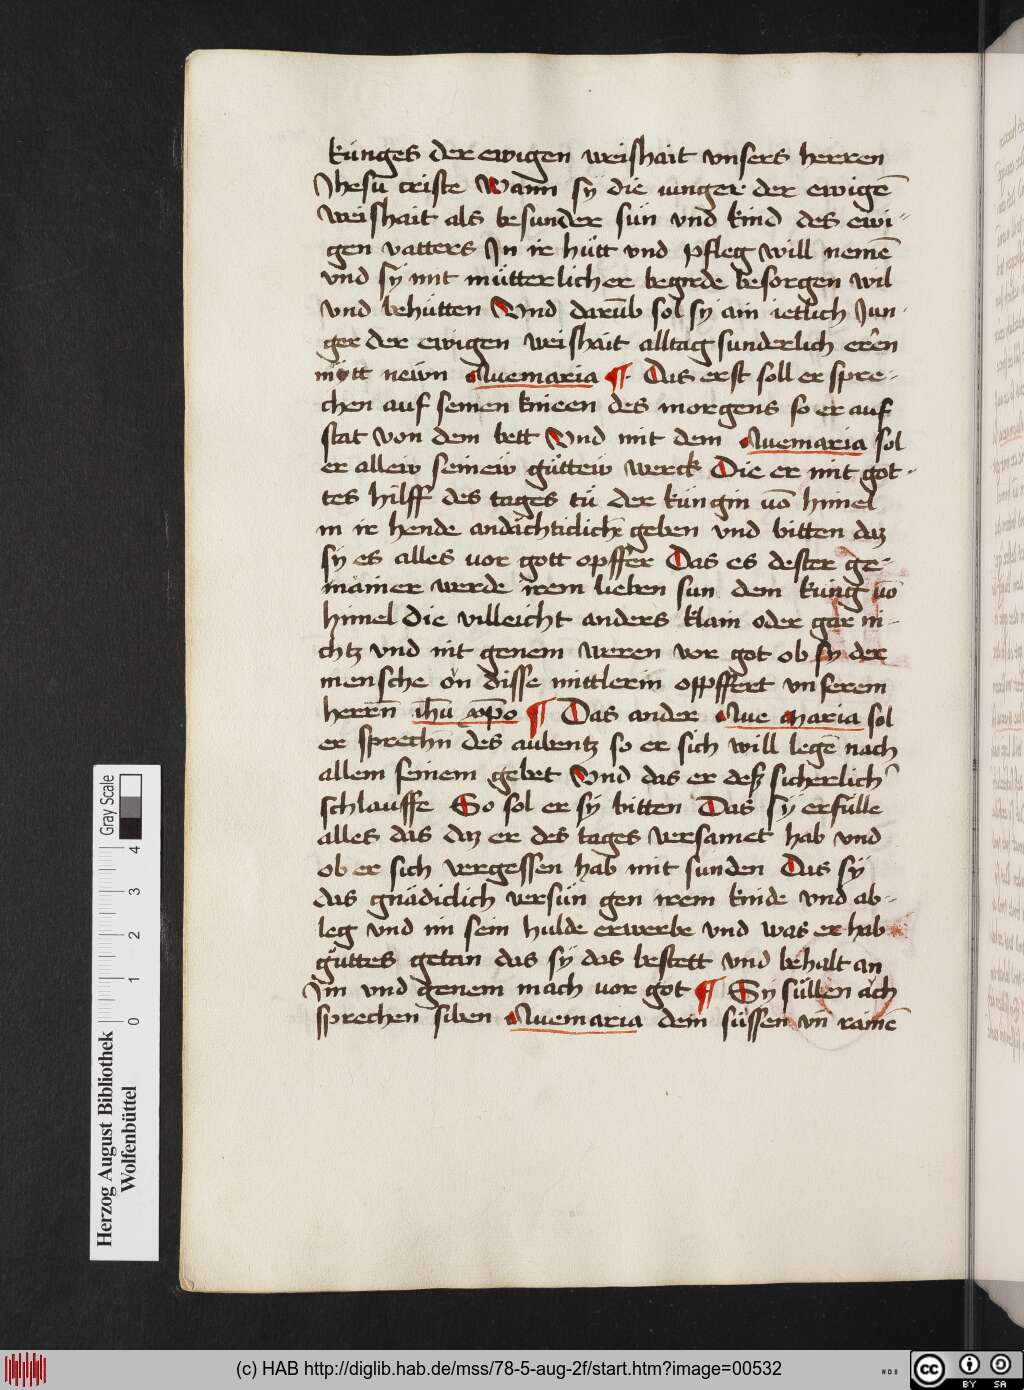 künges der ewigen weishait vnsers herren
Jhesu criste Wann sÿ die iunger der ewigē
weishait als besunder sün vnd kind des ewi-
gen vatters Jn ir hütt vnd pfleg will nemē
vnd sÿ mit mütterlicher begirde besorgen wil
vnd behütten Vnd darūb sol sÿ ain ietlich Jun-
ger der ewigen weishait alltag sunderlich eren
mÿtt newn Auemaria ¶ Das erst soll er spre-
chen auf seinen knieen des morgens so er auf
stat von dem bett Vnd mit dem Auemaria sol
er allew seinew güttew werck Die er mit got-
tes hilff des tages tü der küngin vō himel
in ir hende andächticlich geben vnd bitten daz
sÿ es alles vor gott opffer Das es dester ge-
mainer werde irem lieben sun dem küng vō
himel Die villeicht anders klain oder gar ni-
chtz vnd nit genem weren vor got ob sÿ der
mensche on disse mittlerin opffert vnserem
herrn ih̄u xp̄o ¶ Das ander Aue maria sol
er sprechn des aubentz so er sich will legē nach
allem seinem gebet Vnd das er desz sicherlich
schlauffe So sol er sÿ bitten Das sÿ erfülle
alles das daz er des tages versamet hab vnd
ob er sich vergessen hab mit sunden Das sÿ
das gnädiclich versün gen irem kinde vnd ab-
leg vnd im sein hulde erwerbe vnd was er hab
guttes getan das sÿ das bestett vnd behalt an
Jm vnd genem mach vor got ¶ Sy süllen ach
sprechen siben Auemaria dem süssen vn̄ rainē
Gray Scale
0 1 2 3 4
Herzog August Bibliothek
Wolfenbüttel
(c) HAB http://diglib.hab.de/mss/78-5-aug-2f/start.htm?image=00532
WDB
cc
BY SA